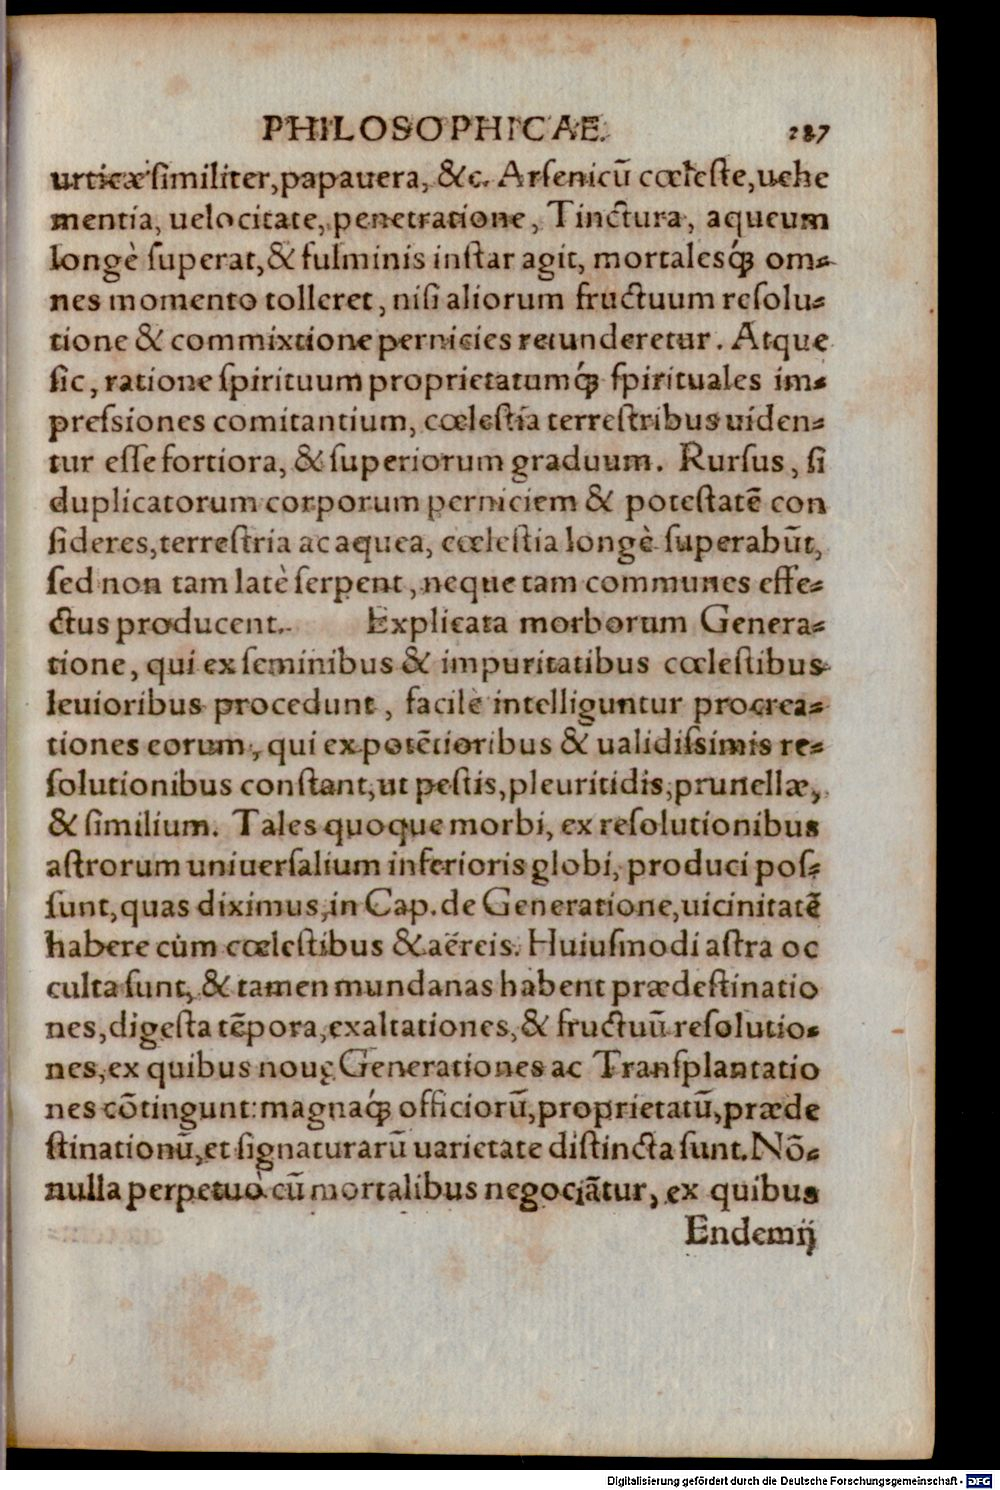 PHILOSOPHICAE. 287
urticæ similiter, papauera, &c. Arsenicū cœleste, uehe
mentia, uelocitate, penetratione, Tinctura, aqueum
longè superat, & fulminis instar agit, mortalesq́; om-
nes momento tolleret, nisi aliorum fructuum resolu-
tione & commixtione pernicies retunderetur. Atque
sic, ratione spirituum proprietatumq́; spirituales im-
pressiones comitantium, cœlestia terrestribus uiden-
tur esse fortiora, & superiorum graduum. Rursus, si
duplicatorum corporum perniciem & potestatē con
sideres, terrestria ac aquea, cœlestia longè superabūt,
sed non tam latè serpent, neque tam communes effe-
ctus producent. Explicata morborum Genera-
tione, qui ex seminibus & impuritatibus cœlestibus
leuioribus procedunt, facilè intelliguntur procrea-
tiones eorum, qui ex potētioribus & ualidissimis re-
solutionibus constant, ut pestis, pleuritidis, prunellæ,
& similium. Tales quoque morbi, ex resolutionibus
astrorum uniuersalium inferioris globi, produci pos-
sunt, quas diximus, in Cap. de Generatione, uicinitatē
habere cùm cœlestibus & aëreis. Huiusmodi astra oc
culta sunt, & tamen mundanas habent prædestinatio
nes, digesta tēpora, exaltationes, & fructuū resolutio-
nes, ex quibus nouę Generationes ac Transplantatio
nes cōtingunt: magnaq́; officiorū, proprietatū, præde
stinationū, et signaturarū uarietate distincta sunt. Nō-
nulla perpetuò cū mortalibus negociātur, ex quibus
Endemij
Digitalisierung gefördert durch die Deutsche Forschungsgemeinschaft - DFG